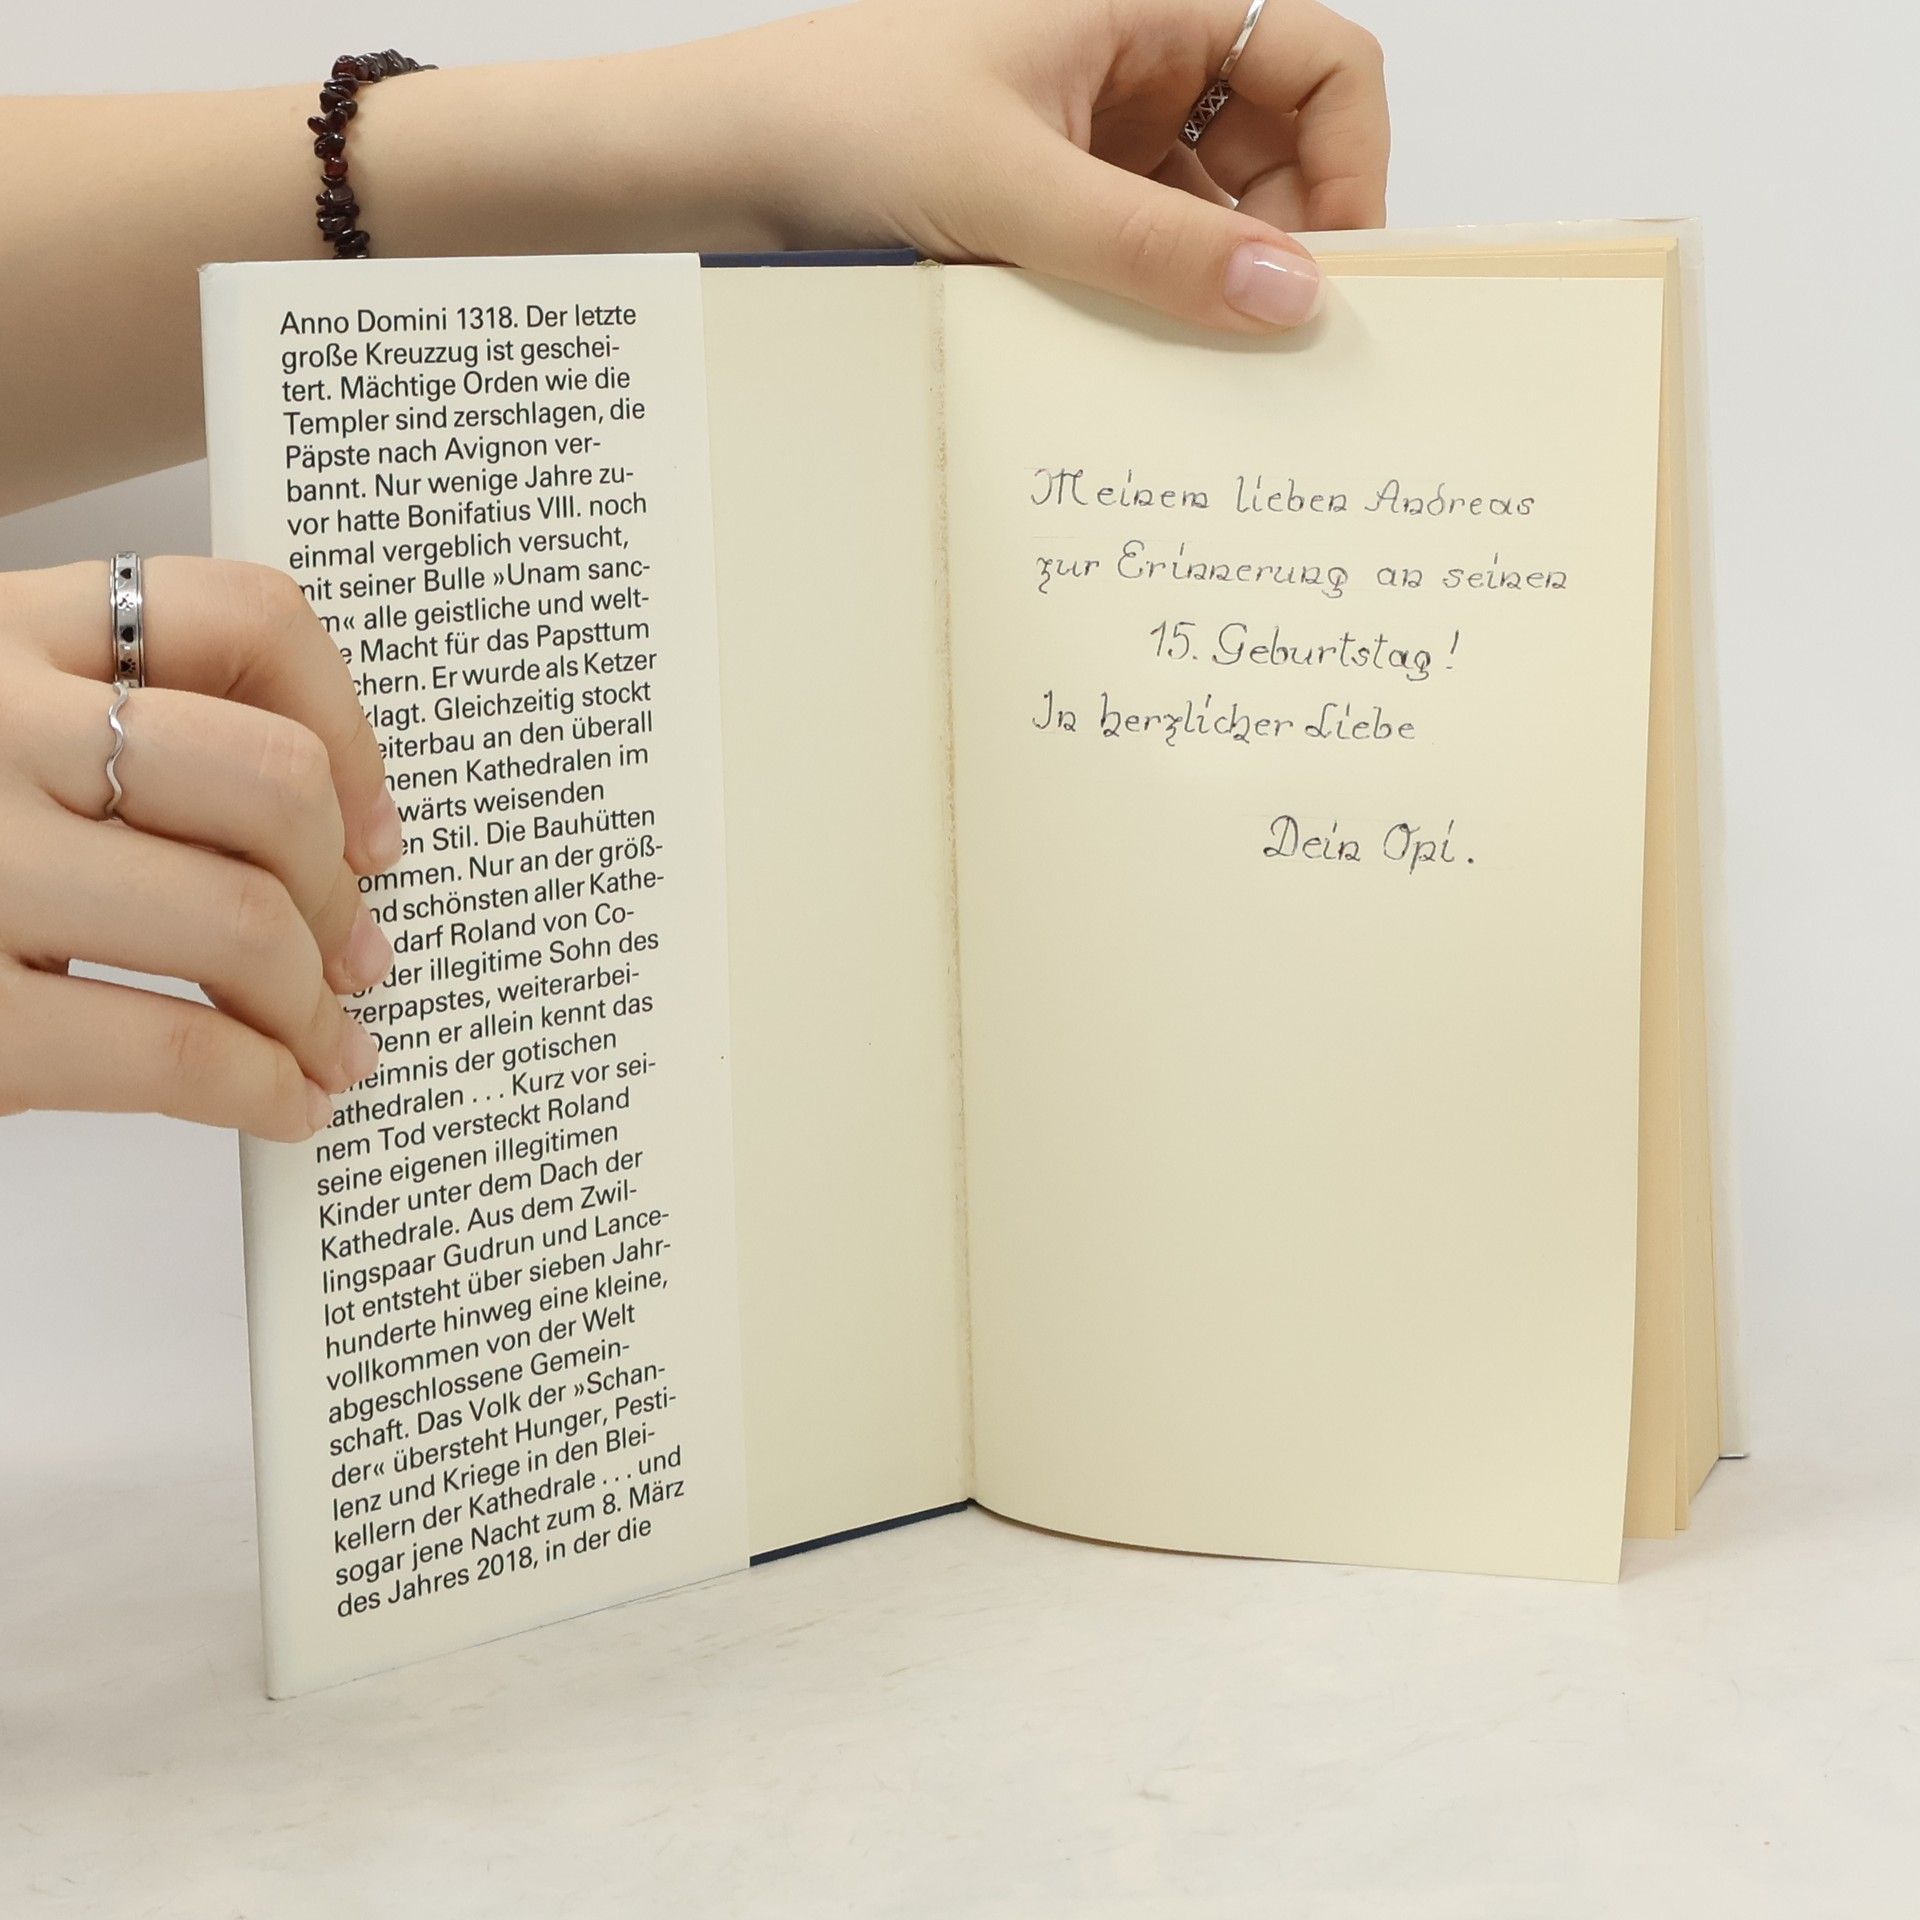 Anno Domini 1318. Der letzte
große Kreuzzug ist geschei-
tert. Mächtige Orden wie die
Templer sind zerschlagen, die
Päpste nach Avignon ver-
bannt. Nur wenige Jahre zu-
vor hatte Bonifatius VIII. noch
einmal vergeblich versucht,
mit seiner Bulle »Unam sanc-
m« alle geistliche und welt-
e Macht für das Papsttum
chern. Er wurde als Ketzer
klagt. Gleichzeitig stockt
eiterbau an den überall
nenen Kathedralen im
wärts weisenden
en Stil. Die Bauhütten
ommen. Nur an der größ-
nd schönsten aller Kathe-
darf Roland von Co-
der illegitime Sohn des
tzerpapstes, weiterarbei-
Denn er allein kennt das
heimnis der gotischen
athedralen . . . Kurz vor sei-
nem Tod versteckt Roland
seine eigenen illegitimen
Kinder unter dem Dach der
Kathedrale. Aus dem Zwil-
lingspaar Gudrun und Lance-
lot entsteht über sieben Jahr-
hunderte hinweg eine kleine,
vollkommen von der Welt
abgeschlossene Gemein-
schaft. Das Volk der »Schan-
der« übersteht Hunger, Pesti-
lenz und Kriege in den Blei-
kellern der Kathedrale . . . und
sogar jene Nacht zum 8. März
des Jahres 2018, in der die
Meinem lieben Andreas
zur Erinnerung an seinen
15. Geburtstag!
In herzlicher Liebe
Dein Opi.